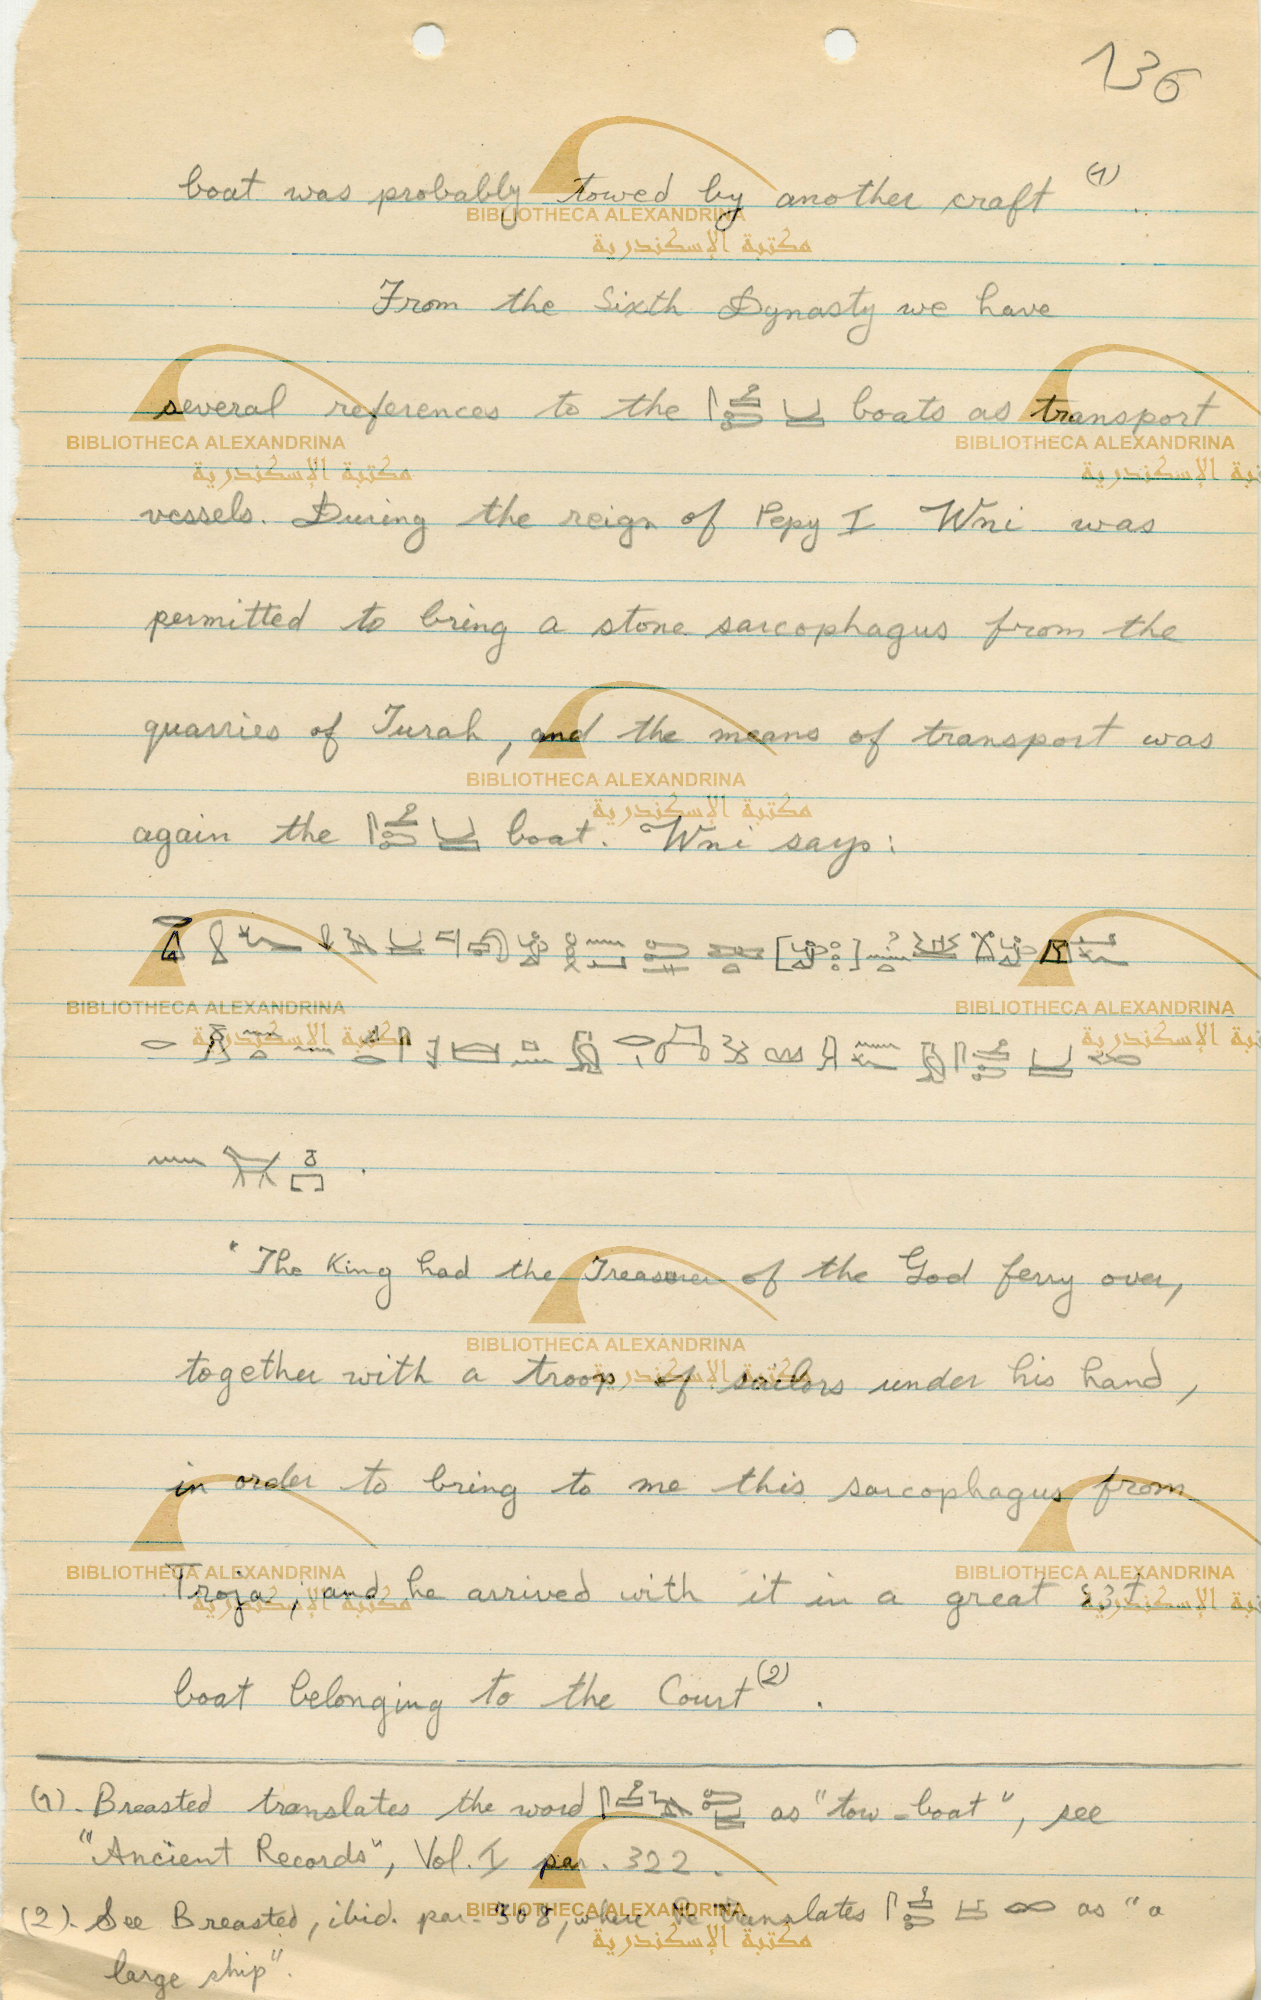 136
boat was probably towed by another craft (1).
From the Sixth Dynasty we have
several references to the boats as transport
vessels. During the reign of Pepy I Wni was
permitted to bring a stone sarcophagus from the
quarries of Turah, and the means of transport was
again the boat. Wni says:
"The King had the Treasurer of the God ferry over,
together with a troop of sailors under his hand,
in order to bring to me this sarcophagus from
Troja, and he arrived with it in a great
boat belonging to the Court (2).
(1). Breasted translates the word as "tow-boat", see
"Ancient Records", Vol. I par. 322.
(2). See Breasted, ibid. par. 308, where he translates as "a
large ship".
BIBLIOTHECA ALEXANDRINA
مكتبة الإسكندرية
BIBLIOTHECA ALEXANDRINA
مكتبة الإسكندرية
BIBLIOTHECA ALEXANDRINA
BIBLIOTHECA ALEXANDRINA
مكتبة الإسكندرية
BIBLIOTHECA ALEXANDRINA
مكتبة الإسكندرية
BIBLIOTHECA ALEXANDRINA
BIBLIOTHECA ALEXANDRINA
مكتبة الإسكندرية
BIBLIOTHECA ALEXANDRINA
مكتبة الإسكندرية
BIBLIOTHECA ALEXANDRINA
BIBLIOTHECA ALEXANDRINA
مكتبة الإسكندرية